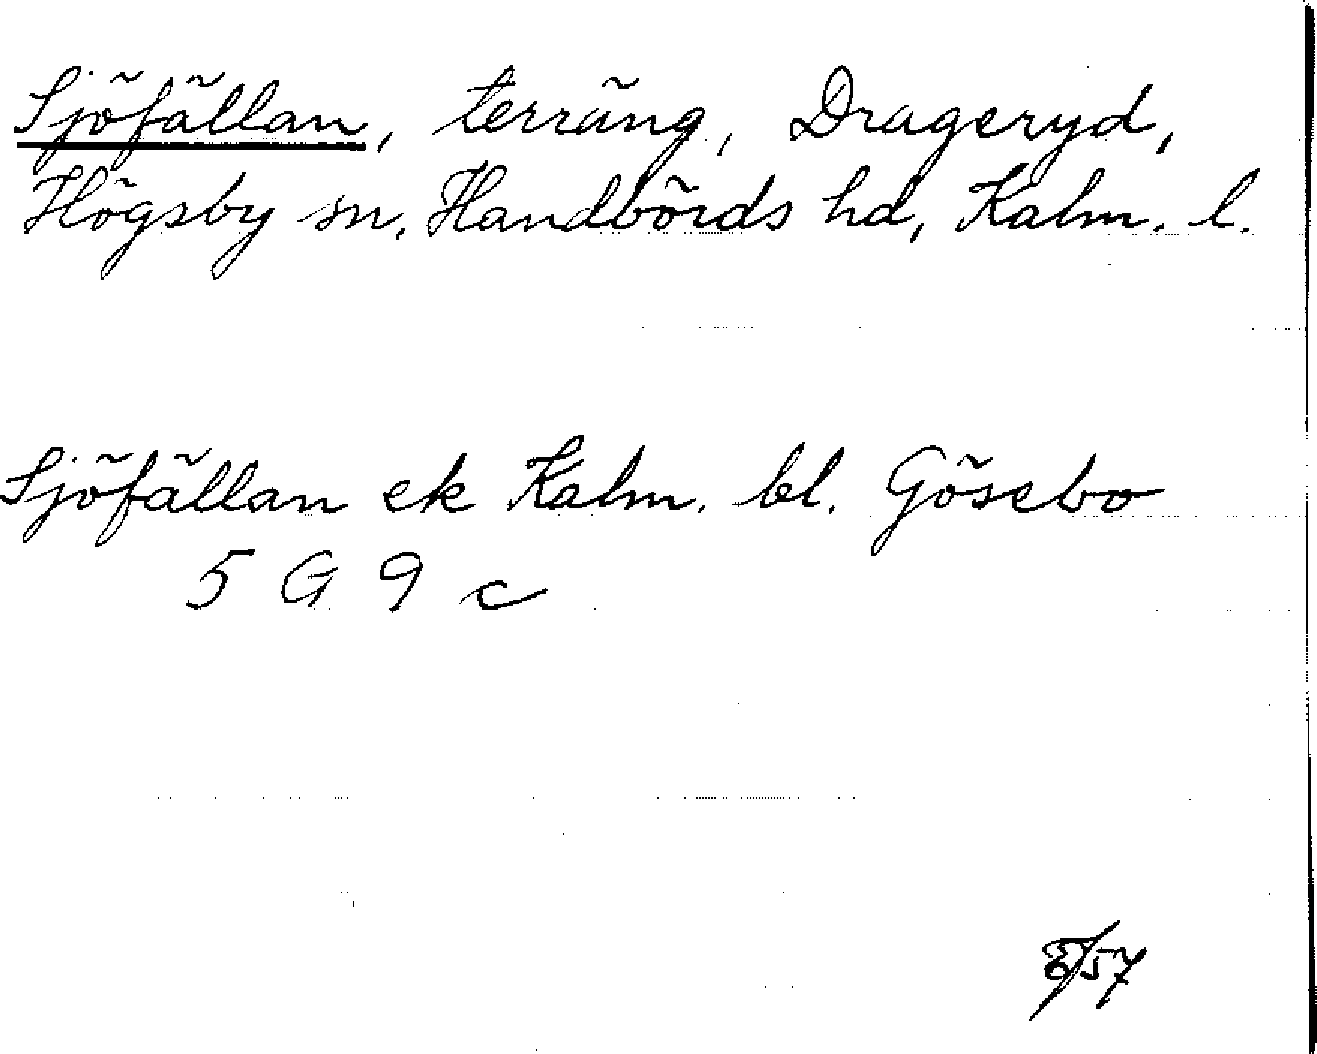 Sjöfällan, terräng, Drageryd,
Högsby sn, Handbörds hd, Kalm. l.
Sjöfällan ek Kalm. bl. Gösebo
5 G 9 c